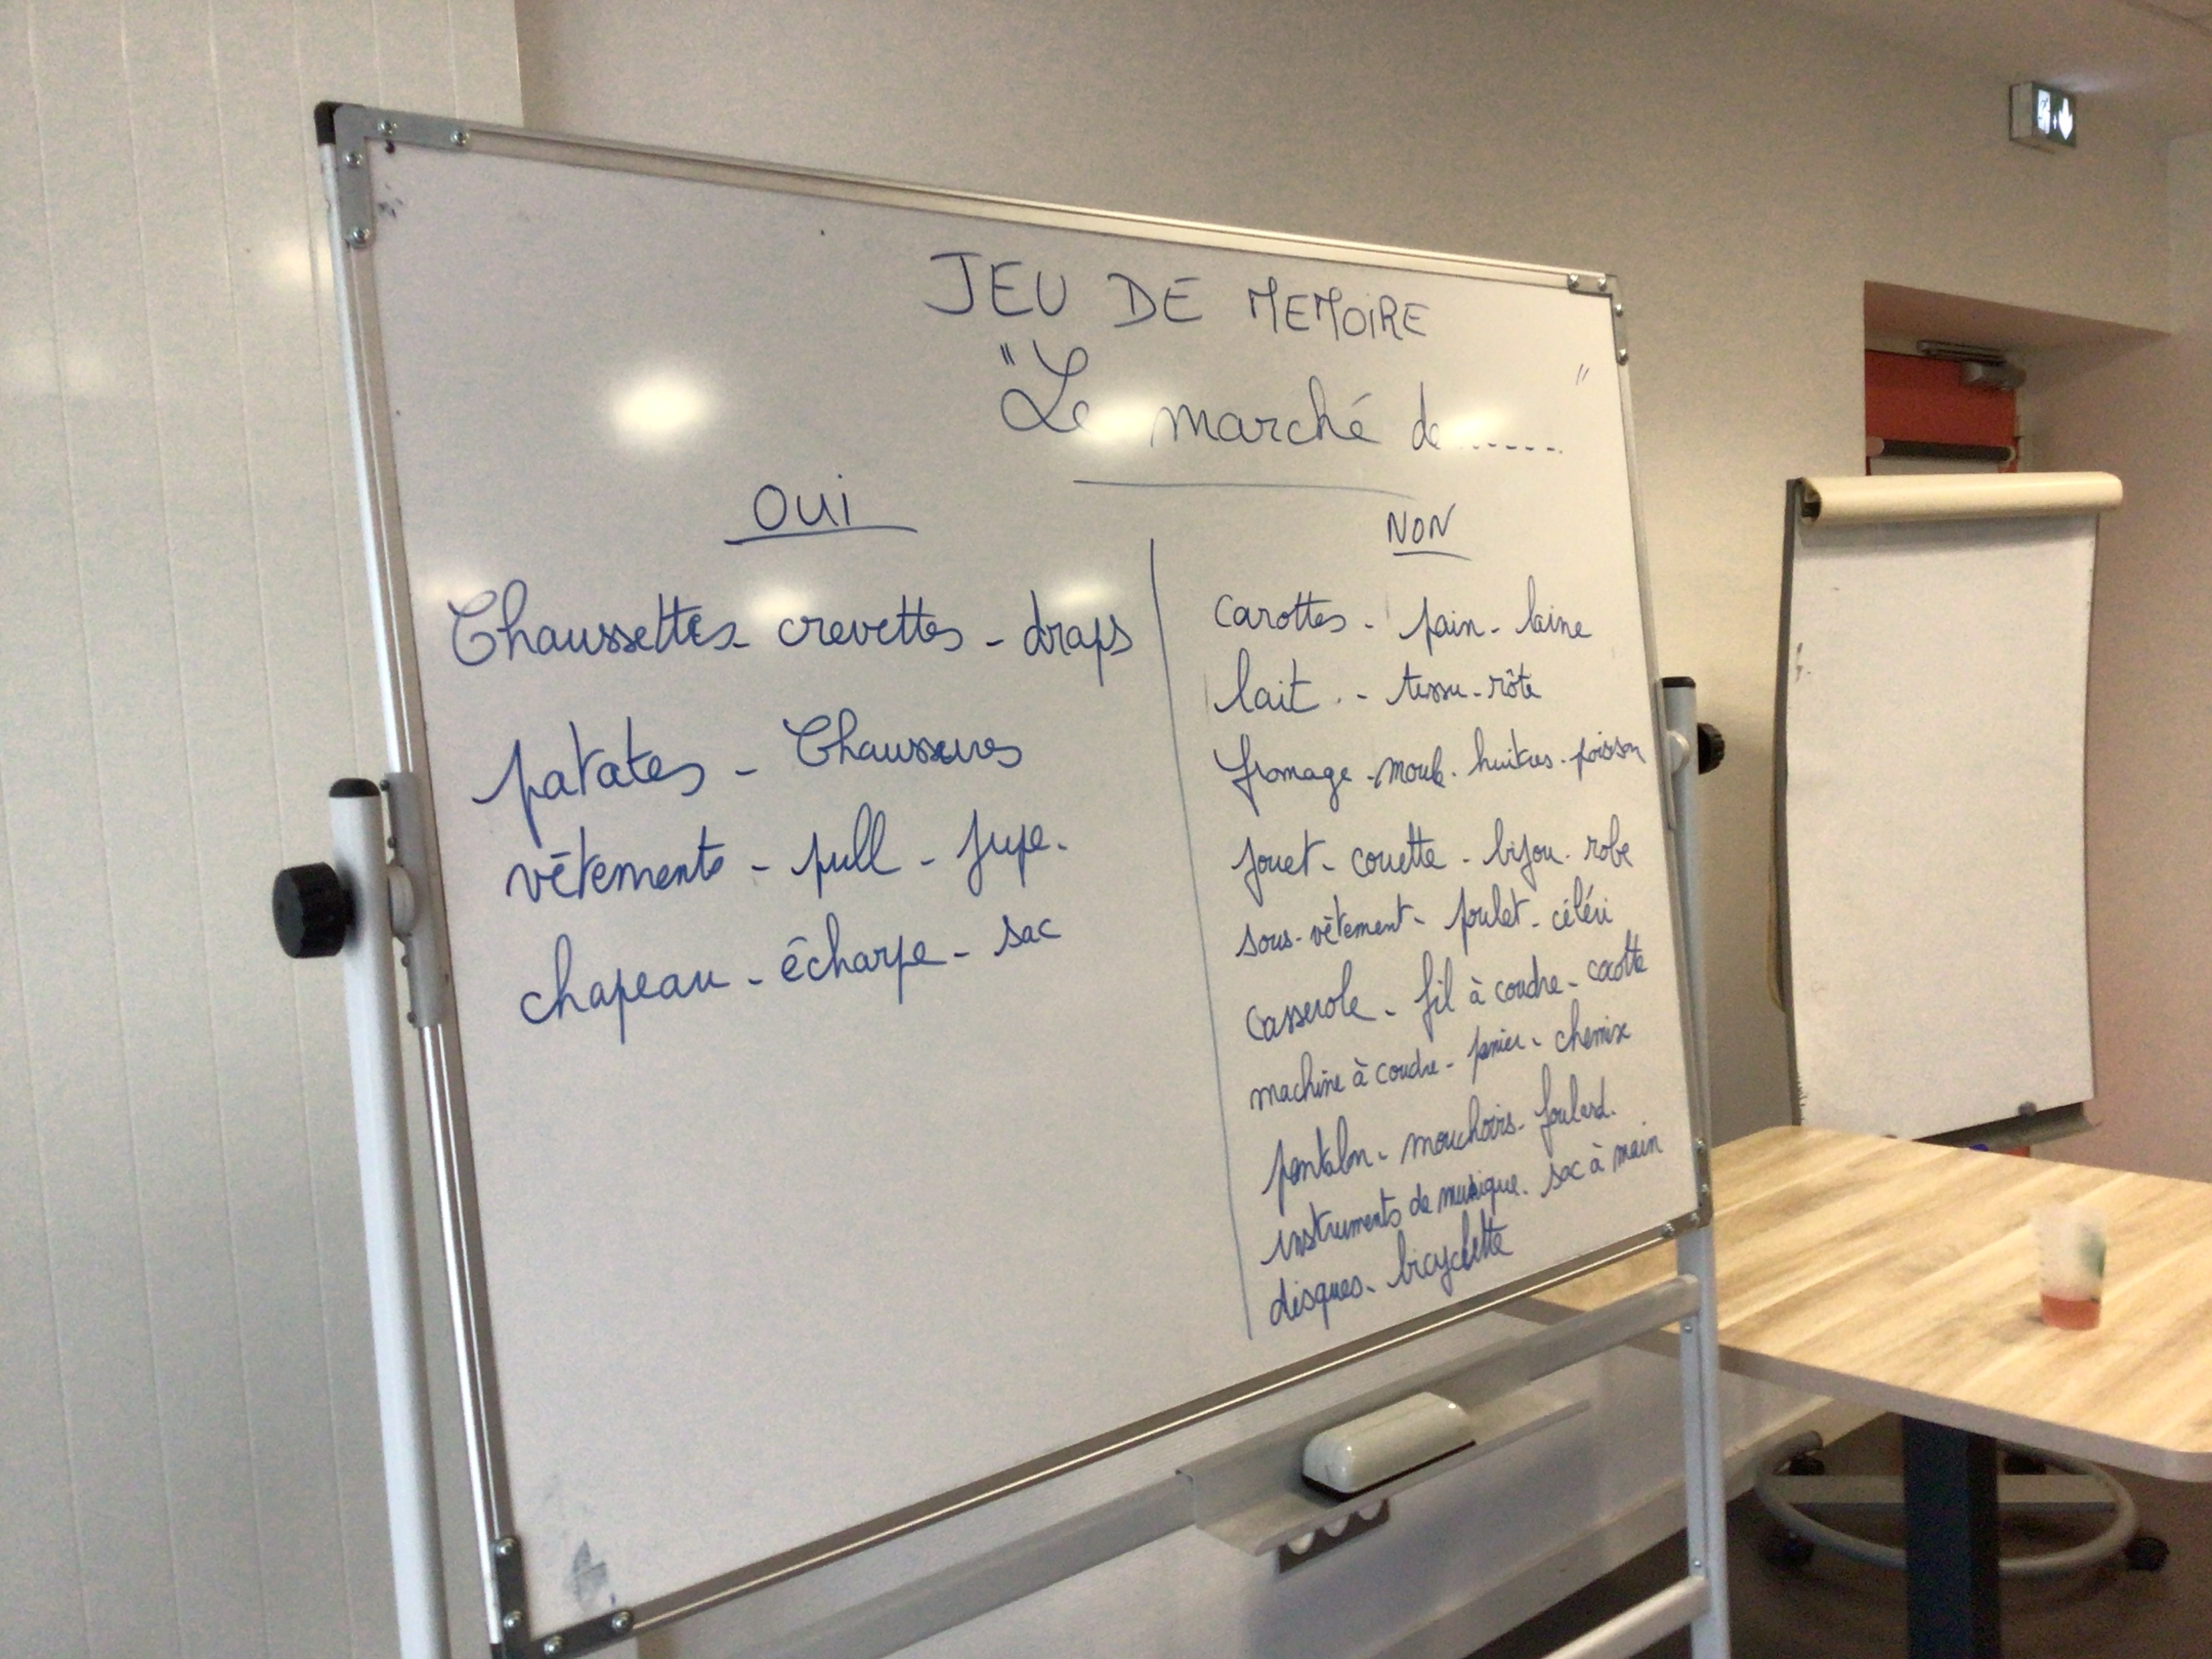 JEU DE MEMOIRE
"Le marché de ......"
OUI
Chaussettes - crevettes - draps
patates - Chaussures
vêtements - pull - jupe.
chapeau - écharpe - sac
NON
carottes - pain - laine
lait - tissu - rôte
fromage - huitres - poisson
jouet - couette - bijou - robe
sous-vêtement - poulet - céléri
casserole - fil à coudre - cocotte
machine à coudre - panier - chemise
pantalon - mouchoirs - foulard.
instruments de musique - sac à main
disques - bicyclette